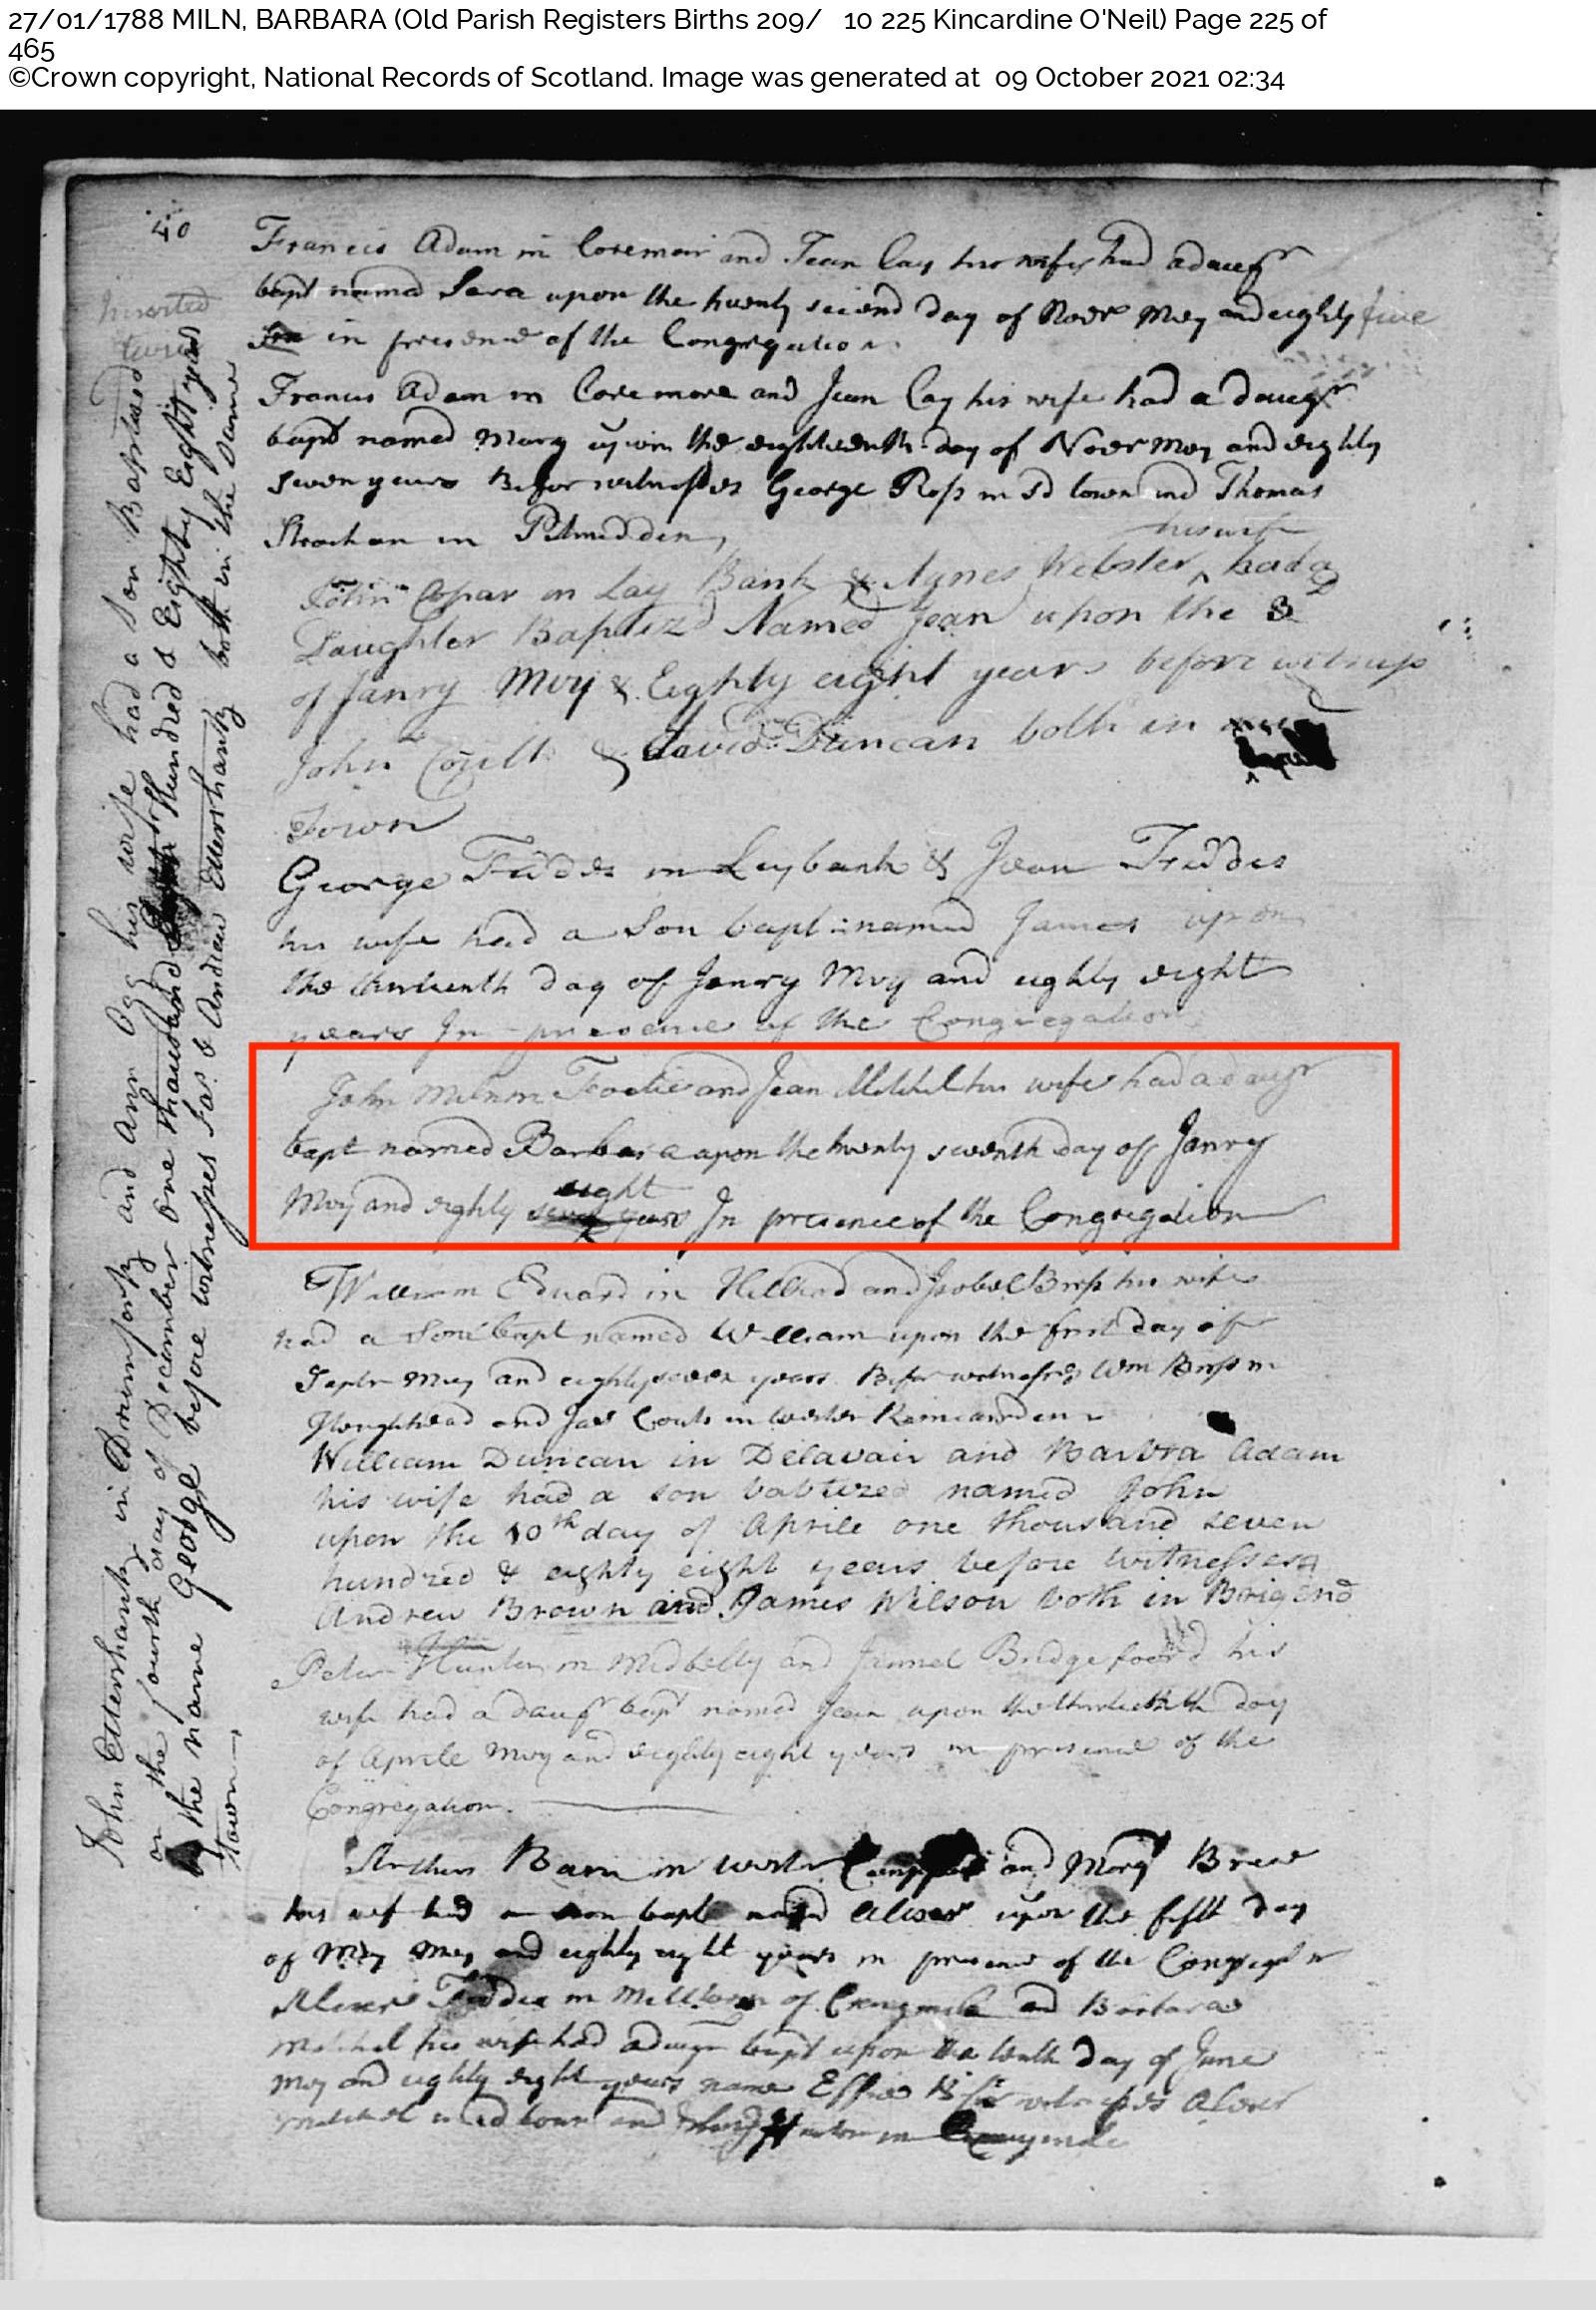 27/01/1788 MILN, BARBARA (Old Parish Registers Births 209/ 10 225 Kincardine O'Neil) Page 225 of
465
©Crown copyright, National Records of Scotland. Image was generated at 09 October 2021 02:34
40
Francis Adam in and Jean Cay his wife had a daugr
bapt named Sara upon the twenty second day of Novr Mvij and eighty five
in presence of the Congregation
Francis Adam in Coremore and Jean Cay his wife had a daugr
bapt named Mary upon the eighteenth day of Novr Mvij and eighty
seven years Befor witnesses George Ross in sd town and Thomas
Strachan in Pitmedden
his wife
John in Lay Bank & Agnes Webster ^ had a
Daughter Baptiz'd Named Jean upon the 3d
of Janry Mvij & Eighty eight years before witness
John Coutts & David Duncan both in
Town
George Fiddes in Leybank & Jean Fiddes
his wife had a Son bapt: named James upon
the day of Janry Mvij and eighty eight
years In presence of the Congregation
John Miln in and Jean Mitchel his wife had a daugr
bapt named Barbara upon the twenty seventh day of Janry
eight
Mvij and eighty seven years In presence of the Congregation
William Edward in and Isobel Bross his wife
had a Sone bapt named William upon the first day of
Septr Mvij and eighty seven years Befor witnesses Wm Bross in
and Jas Couts in wester
William Duncan in Delavair and Barbra Adam
his wife had a son babtized named John
upon the 10th day of Aprile one thousand seven
hundred & eighty eight years before witnesses
Andrew Brown and James Wilson both in Brigend
Peter Hunter in Midbelty and Jannet Bridgefoord his
wife had a daugr bapt named Jean upon the day
of Aprile Mvij and eighty eight years in presence of the
Congregation.
Arthur in wester and Margt
his wif had a son bapt named Alexr upon the fifth day
of May Mvij and eighty eight years in presence of the
Alexr Fiddes in Milltown of Craigmile and Barbara
Mitchel his wife had a daugr bapt upon the tenth day of June
Mvij and eighty eight years name Effie Befor witnesses Alexr
Mitchel in sd town and in
Inserted
John Ettershank in and Ann Ogg his wife had a Son Baptised
on the fourth day of December One thousand Hundred & Eighty Eight years
the name George before witnesses Jas & Andrew Ettershanks both in the Same
Town